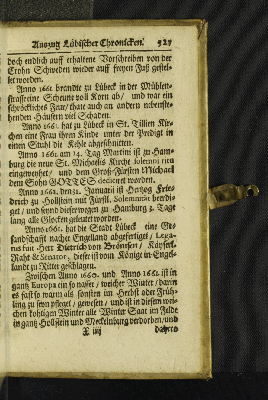 Auszug Lübischer Chronicken. 927
doch endlich auff erhaltene Vorschreiben von der
Crohn Schweden wieder auff freyen Fuß gestel-
let worden.
Anno 1661 brandte zu Lübeck in der Mühlen-
strasse eine Scheune voll Korn ab/ und war ein
schröckliches Feur/ thäte auch an andern nebenste-
henden Häusern viel Schaden.
Anno 1661. hat zu Lübeck in St. Tillien Kir-
chen eine Frau ihren Kinde unter der Predigt in
einen Stuhl die Kehle abgeschnitten.
Anno 1661 am 14. Tag Martini ist zu Ham-
burg die neue St. Michaelis Kirche solemni
eingeweyhet/ und dem Groß-Fürsten Michael
dem Sohn GOTTES dediciret worden.
Anno 1661. den 31. Januarii ist Hertzog Frie-
drich zu Hollstein mit Fürstl. Solemnität beerdi-
get/ und seind dieserwegen zu Hamburg 3. Tage
lang alle Glocken geleutet worden.
Anno 1661. hat die Stadt Lübeck eine Ge-
sandschafft nacher Engelland abgefertiget/ Lega-
tus war Herr Dietrich von Brömsen/ Käyserl.
Raht & Senator, dieser ist vom Könige in Engel-
landt zu Ritter geschlagen.
Zwischen Anno 1660. und Anno 1661. ist in
gantz Europa ein so nasser/ weicher Winter/ darin
es fast so warm als sonsten im Herbst oder Früh-
ling zu seyn pfleget/ gewesen/ und ist in diesem wei-
chen kohtigen Winter alle Winter Saat im Felde
in gantz Hollstein und Mecklnburg verdorben/ und
dahero